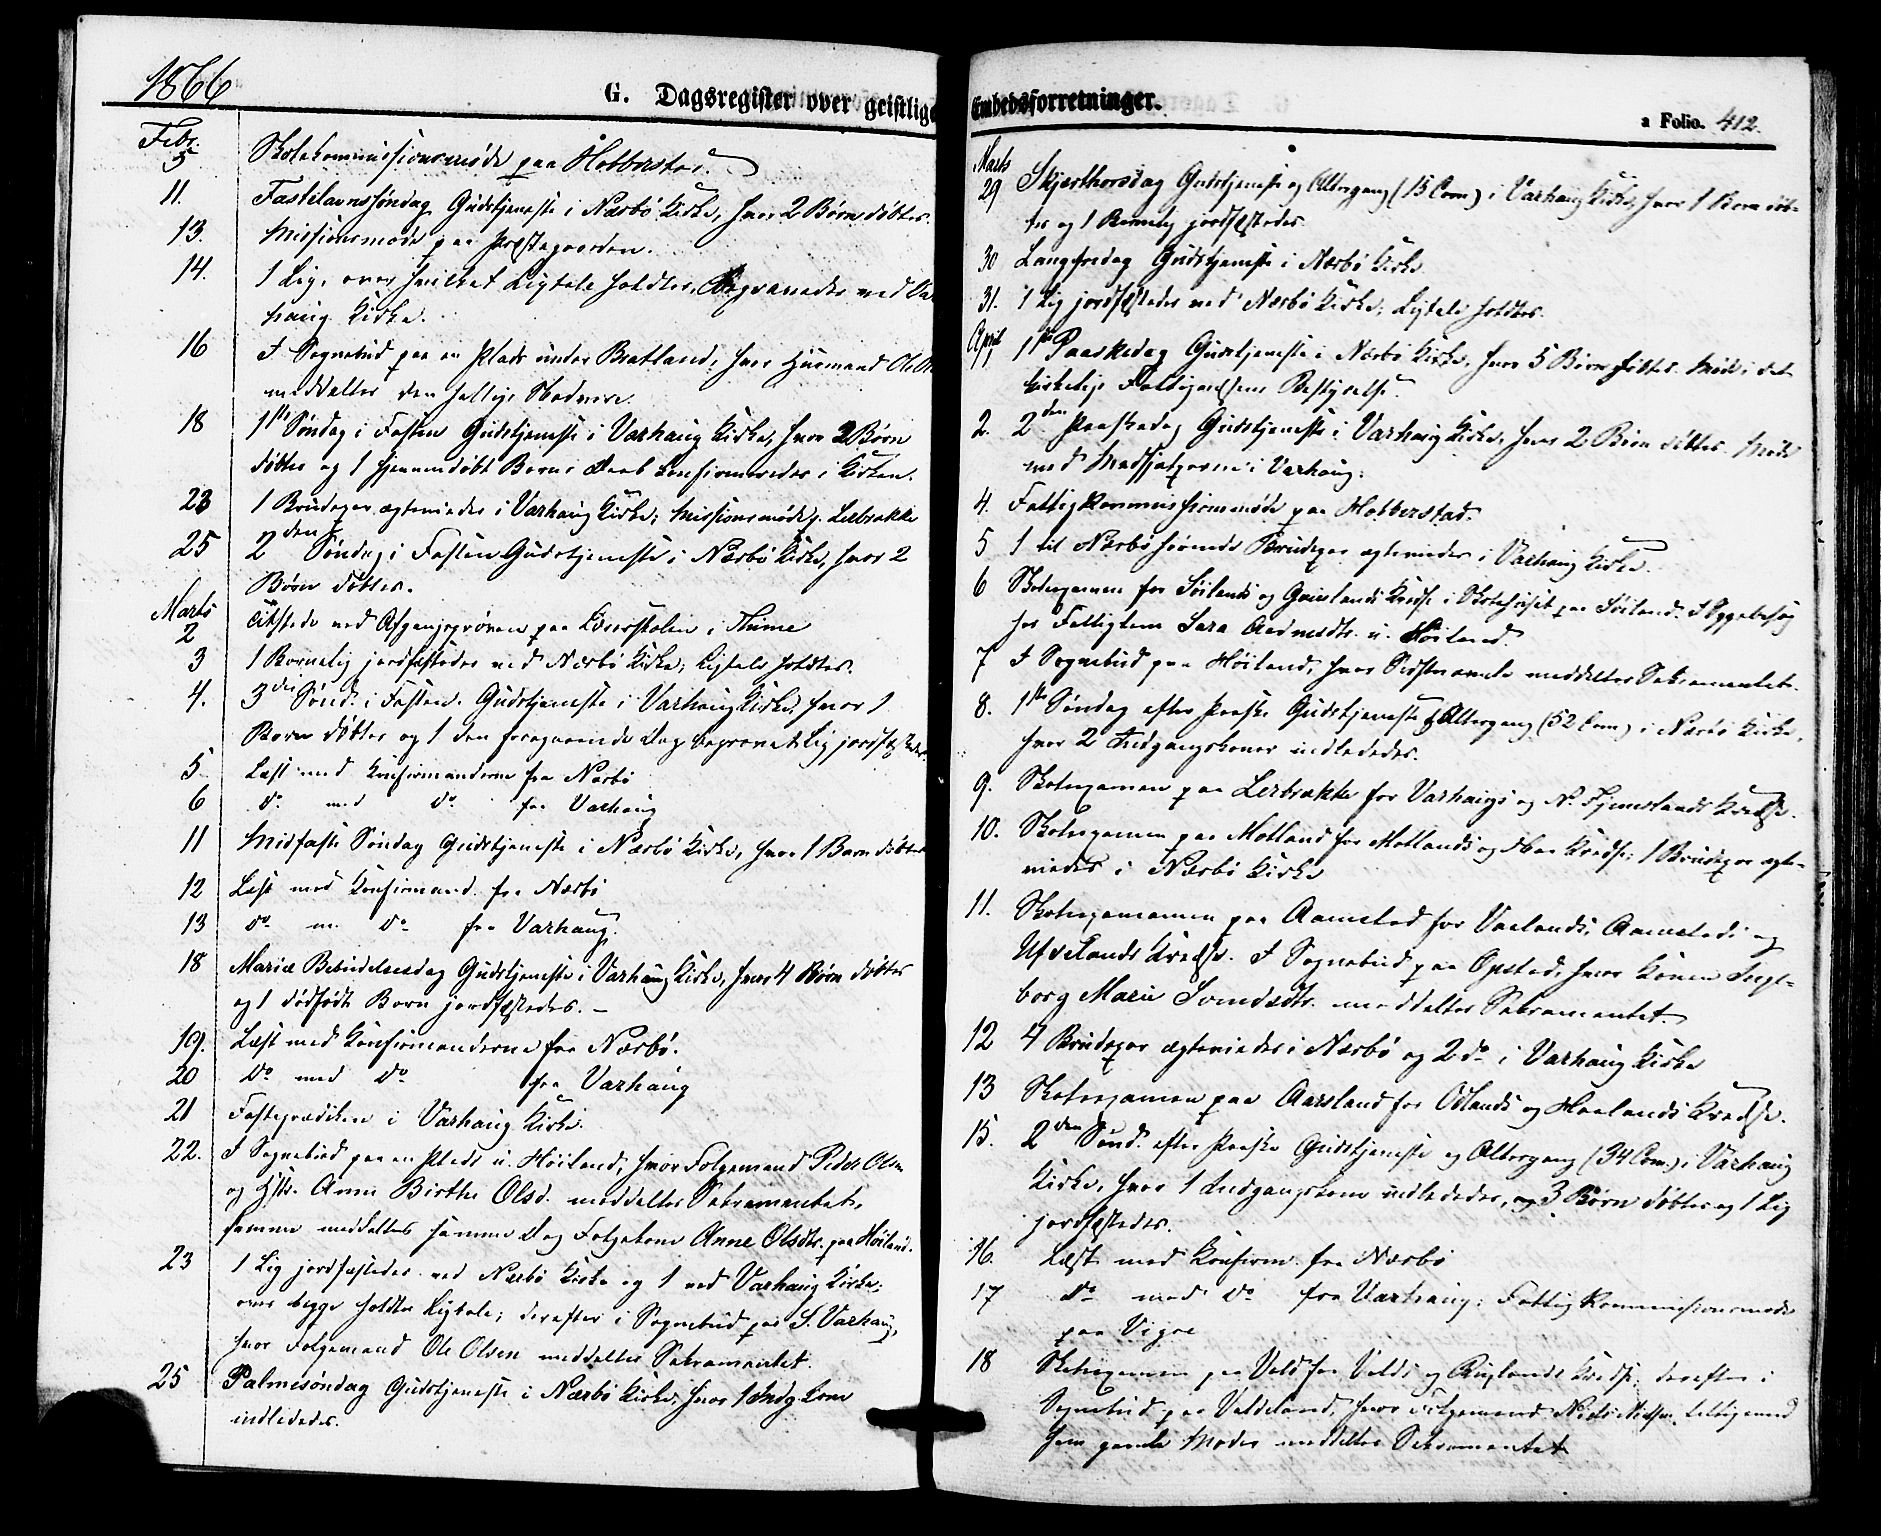 1866
G. Dagsregister over geistlige
Febr.
5 Skolekommissionsmøde paa Hobberstad.
11. Fastelavnssøndag Gudstjeneste i Nærbø Kirke, hvor 2 Børn døbtes.
13. Missionsmøde paa Præstegaarden.
14. 1 Lig, over hvilket Ligtale holdtes, begravedes ved Va
haug Kirke.
16 I Sognebud paa en Plads under Bratland, hvor Huusmand Ole
meddeltes den hellige Nadvere.
18 1ste Søndag i Fasten Gudstjeneste i Varhaug Kirke, hvor 2 Børn
døbtes og 1 hjemmedøbt Barns Daab konfirmeredes i Kirken.
23 1 Brudepar ægteviedes i Varhaug Kirke; Missionsmøde p. Lerbrække
25 2den Søndag i Fasten Gudstjeneste i Nærbø Kirke, hvor 2
Børn døbtes.
Marts
2 Tilstede ved Afgangsprøven paa Lærerskolen i Thime
3 1 Barnelig jordfæstedes ved Nærbø Kirke; Ligtale holdtes.
4. 3die Sønd. i Fasten. Gudstjeneste i Varhaug Kirke, hvor 1
Barn døbtes og 1 den foregaaende Dag begravet Lig jordfæstedes.
5 Læst med Konfirmanderne fra Nærbø
6 do med do fra Varhaug
11 Midfaste Søndag Gudstjeneste i Nærbø Kirke, hvor 1 Barn døbtes
12 Læst med Konfirmand. fra Nærbø
13 do m. do fra Varhaug.
18 Mariæ Bebudelsesdag Gudstjeneste i Varhaug Kirke, hvor 4 Børn døbtes
og 1 dødfødt Barn jordfæstedes. –
19. Læst med Konfirmanderne fra Nærbø.
20 do med do fra Varhaug
21 Fasteprædiken i Varhaug Kirke.
22. I Sognebud paa en Plads u. Høiland, hvor Folgemand Peder Olsen
og Hstr. Anne Birthe Olsd. meddeltes Sakramentet,
samme meddeltes samme Dag Folgekone Anne Olsdtr. paa Høiland.
23 1 Lig jordfæstedes ved Nærbø Kirke og 1 ved Varhaug Kirke;
over begge holdtes Ligtale; derefter i Sognebud paa S. Varhaug,
hvor Folgemand Ole Olsen meddeltes Sakramentet.
25 Palmesøndag Gudstjeneste i Nærbø Kirke, hvor 1 Indg. kone
indlededes.
Embedsforretninger.
a Folio. 412.
Marts
29 Skjærthorsdag Gudstjeneste og Altergang (15 Com.) i Varhaug Kirke, hvor 1 Barn døb-
tes og 1 Barnelig jordfæstedes.
30 Langfredag Gudstjeneste i Nærbø Kirke.
31. 1 Lig jordfæstedes ved Nærbø Kirke; Ligtale holdtes.
April
1 1ste Paaskedag Gudstjeneste i Nærbø Kirke, hvor 5 Børn døbtes. Møde i det
kirkelige Fattigvæsens Bestyrelse.
2. 2den Paaskedag Gudstjeneste i Varhaug Kirke, hvor 2 Børn døbtes. Møde
med Medhjælperne i Varhaug.
4. Fattigkommissionsmøde paa Hobberstad.
5 1 til Nærbø hørende Brudepar ægteviedes i Varhaug Kirke.
6 Skoleexamen for Høilands og Grødelands Kreds i Skolehuset paa Høiland. Sygebesøg
hos Fattiglem Sara Aadnesdtr. u. Høiland.
7 I Sognebud paa Høiland, hvor Sidstnævnte meddeltes Sakramentet.
8. 1ste Søndag efter Paaske Gudstjeneste & Altergang (52 Com.) i Nærbø Kirke,
hvor 2 Indgangskoner indlededes.
9. Skoleexamen paa Lerbrække for Varhaugs og N. Fjemstands Kredse.
10. Skoleexamen paa Motland for Motlands og Kredse; 1 Brudepar ægte-
viedes i Nærbø Kirke
11. Skoleexamen paa Aamstad for Varlands, Aamstads og
Ufselands Kredse. I Sognebud paa Opstad, hvor Konen Inge-
borg Marie Svendsdtr. meddeltes Sakramentet.
12 4 Brudepar ægteviedes i Nærbø og 2 do i Varhaug Kirke
13 Skoleexamen paa Aarsland for Odlands og Haalands Kredse.
15. 2den Sønd. efter Paaske Gudstjeneste og Altergang (34 Com.) i Varhaug
Kirke, hvor 1 Indgangskone indlededes, og 3 Børn døbtes og 1 Lig
jordfæstedes.
16. Læst med Konfirm. fra Nærbø
17 do med do fra Varhaug; Fattigkommissionsmøde
paa Vigre
18 Skoleexamen paa Vold for Volds og Ruglands Kredse; derefter i
Sognebud paa Voldeland, hvor Folgemand Niels Nielsen, tilligemed
hans gamle Moder meddeltes Sakramentet